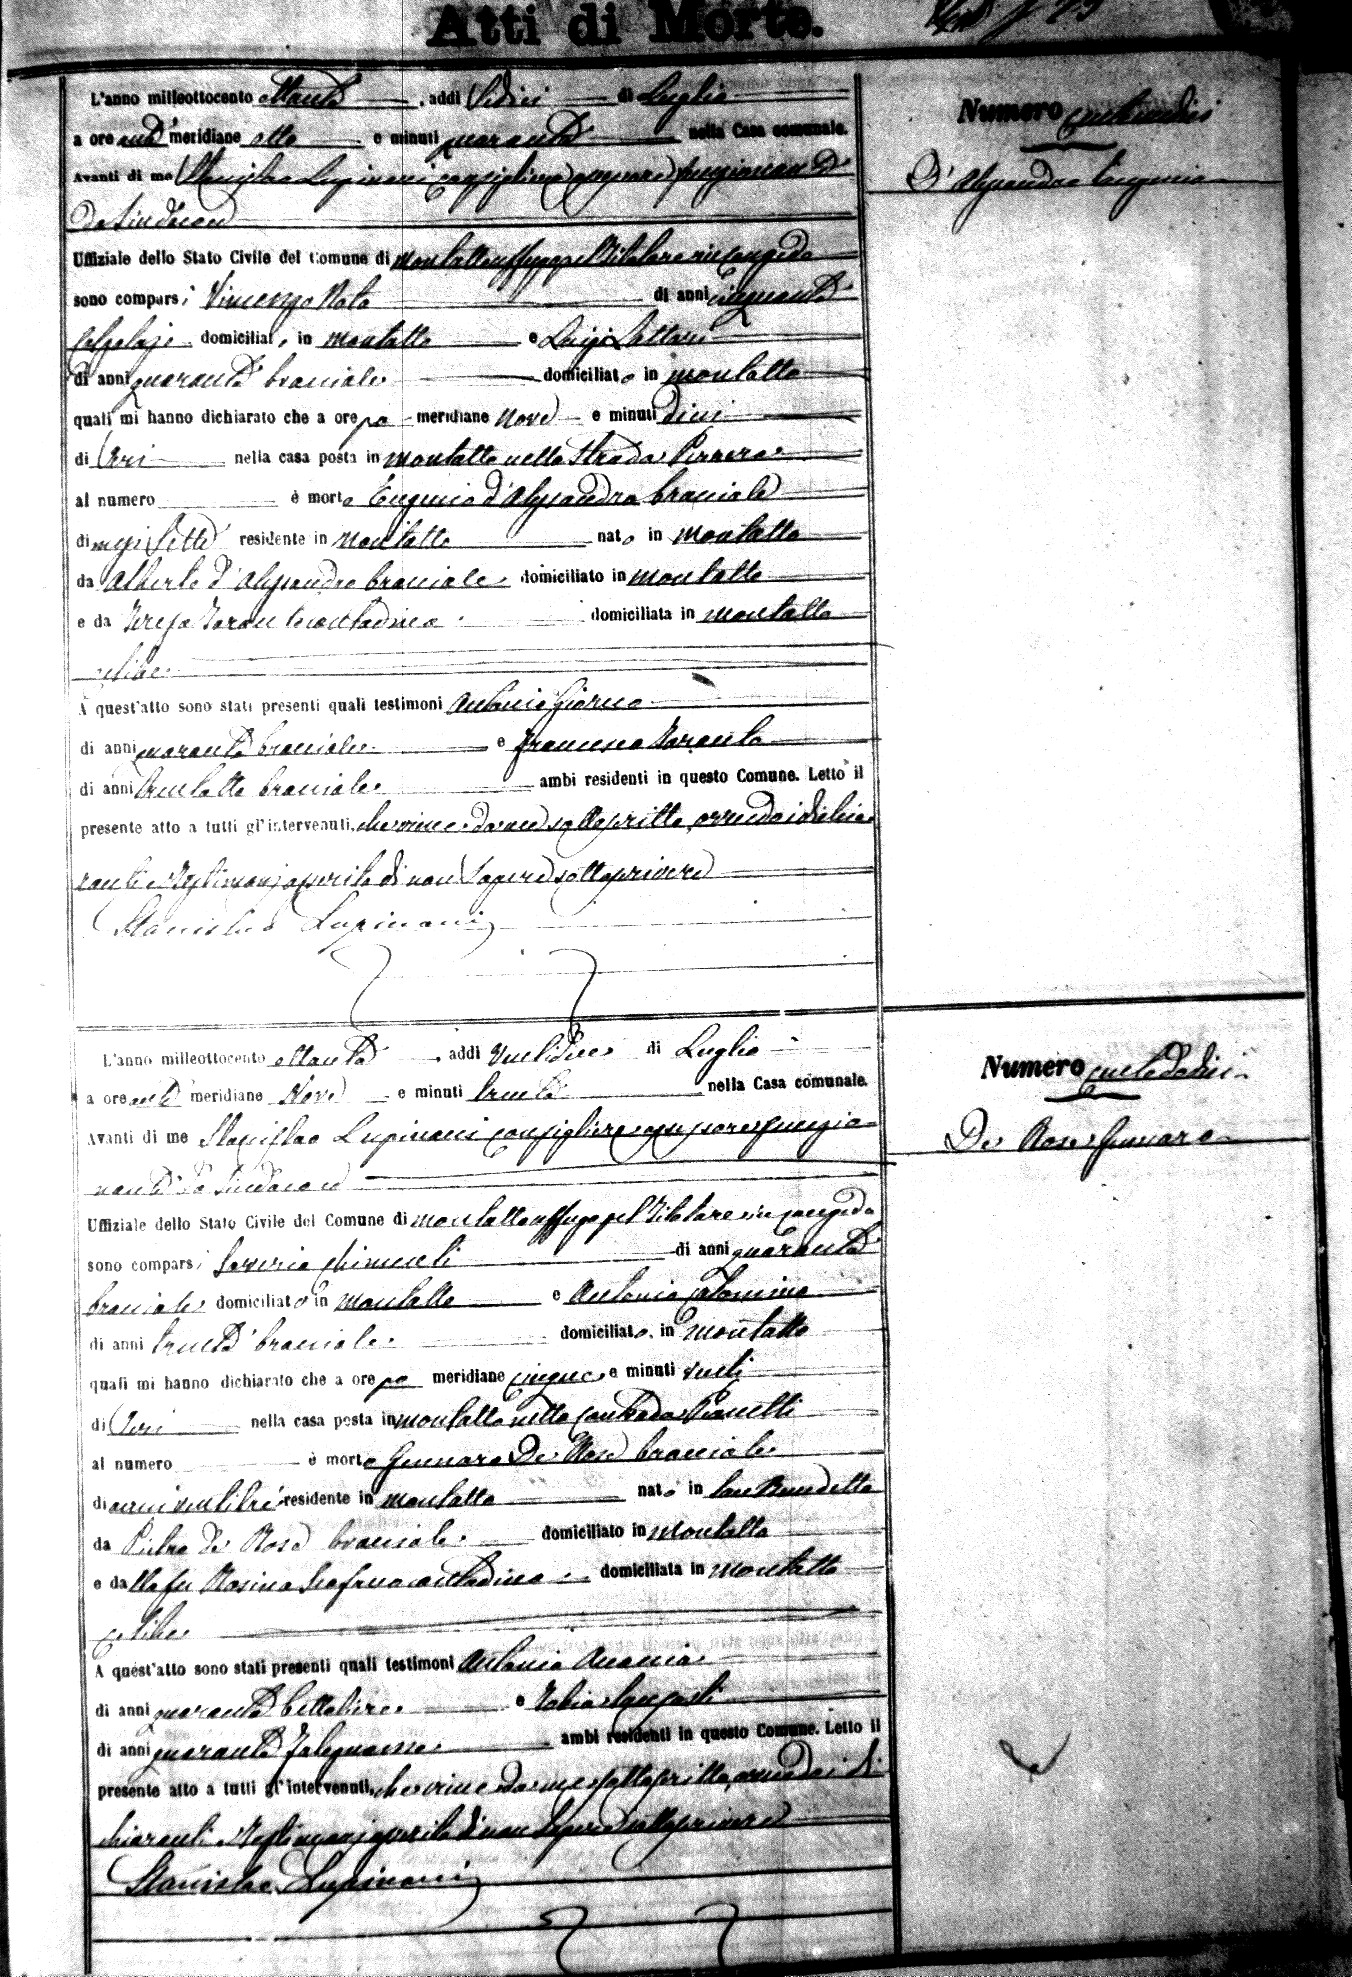 Atti di Morte.
L'anno milleottocento ottanta, addì Sedici di Luglio
a ore anti meridiane otto e minuti quaranta nella Casa comunale.
Avanti di me Stanislao Lupinacci consigliere anziano funzionante
da Sindaco
Uffiziale dello Stato Civile del Comune di Montalto Uffugo pel titolare in congedo
sono comparsi Vincenzo Nota di anni cinquanta
domiciliato in Montalto e Luigi Lattari
di anni quaranta bracciale domiciliato in Montalto
quali mi hanno dichiarato che a ore po meridiane nove e minuti dieci
di ieri nella casa posta in Montalto nella Strada
al numero è morto Eugenio d'Alessandro bracciale
di mesi sette residente in Montalto nato in Montalto
da Alberto d'Alessandro bracciale domiciliato in Montalto
e da Teresa Taranto contadina domiciliata in Montalto
celibe
A quest'atto sono stati presenti quali testimoni Antonio Giorno
di anni quaranta bracciale e Francesco Taranto
di anni trentotto bracciale ambi residenti in questo Comune. Letto il
presente atto a tutti gl'intervenuti, che viene da me sottoscritto, avendo i dichia
ranti e testimoni asserito di non sapere sottoscrivere
Stanislao Lupinacci
Numero
D'Alessandro Eugenio
L'anno milleottocento ottanta, addì ventidue di Luglio
a ore anti meridiane Nove e minuti trenta nella Casa comunale.
Avanti di me Stanislao Lupinacci consigliere anziano funzio
nante da Sindaco
Uffiziale dello Stato Civile del Comune di Montalto Uffugo pel titolare in congedo
sono comparsi Saverio Chimenti di anni quaranta
bracciale domiciliato in Montalto e Antonio
di anni trenta bracciale domiciliato in Montalto
quali mi hanno dichiarato che a ore po meridiane cinque e minuti venti
di ieri nella casa posta in Montalto nella contrada Pianetti
al numero è morto Gennaro De Rose bracciale
di anni ventitre residente in Montalto nato in San Benedetto
da Pietro de Rose bracciale domiciliato in Montalto
e dalla fu Rosina Scafano contadina domiciliata in Montalto
celibe
A quest'atto sono stati presenti quali testimoni Antonio Anania
di anni quaranta bettoliere e Tobia
di anni quaranta falegname ambi residenti in questo Comune. Letto il
presente atto a tutti gl'intervenuti, che viene da me sottoscritto, avendo i di
chiaranti e testimoni asserito di non sapere sottoscrivere
Stanislao Lupinacci
Numero
De Rose Gennaro